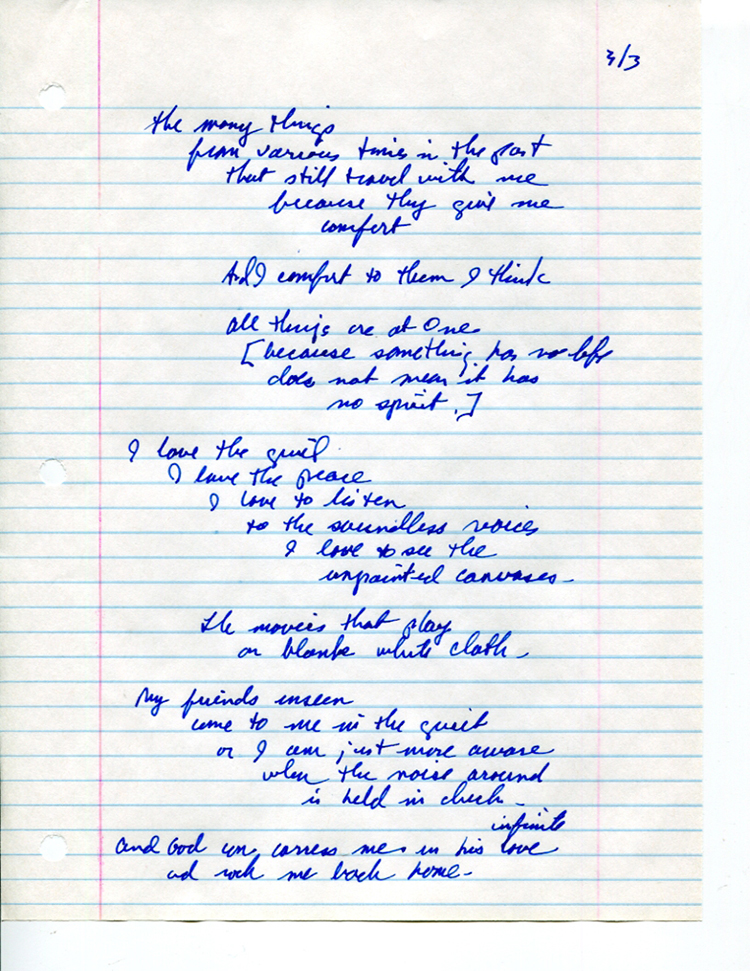 3/3
the many things
from various times in the past
that still travel with me
because they give me
comfort
And I comfort to them I think
all things are at One
[because something has no life
does not mean it has
no spirit.]
I love the quiet
I love the peace
I love to listen
to the soundless voices
I love to see the
unpainted canvases -
the movies that play
on blank white cloth -
My friends unseen
come to me in the quiet
or I am just more aware
when the noise around
is held in check -
infinite
and God can caress me in his love
and rock me back home -